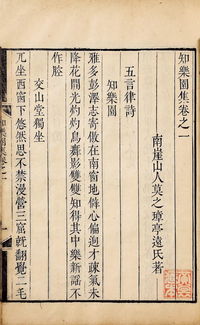 知樂園集卷之一
南崖山人莫之璋亭遠氏著
五言律詩
知樂園
雅多彭澤志寄傲在南窗地僻心偏逈才疎氣未
降花開光灼灼鳥舞影雙雙知得其中樂新謡不
作腔
交山堂獨坐
兀坐西窗下悠然思不禁漫營三窟就翻覺二毛
知樂園集卷之一